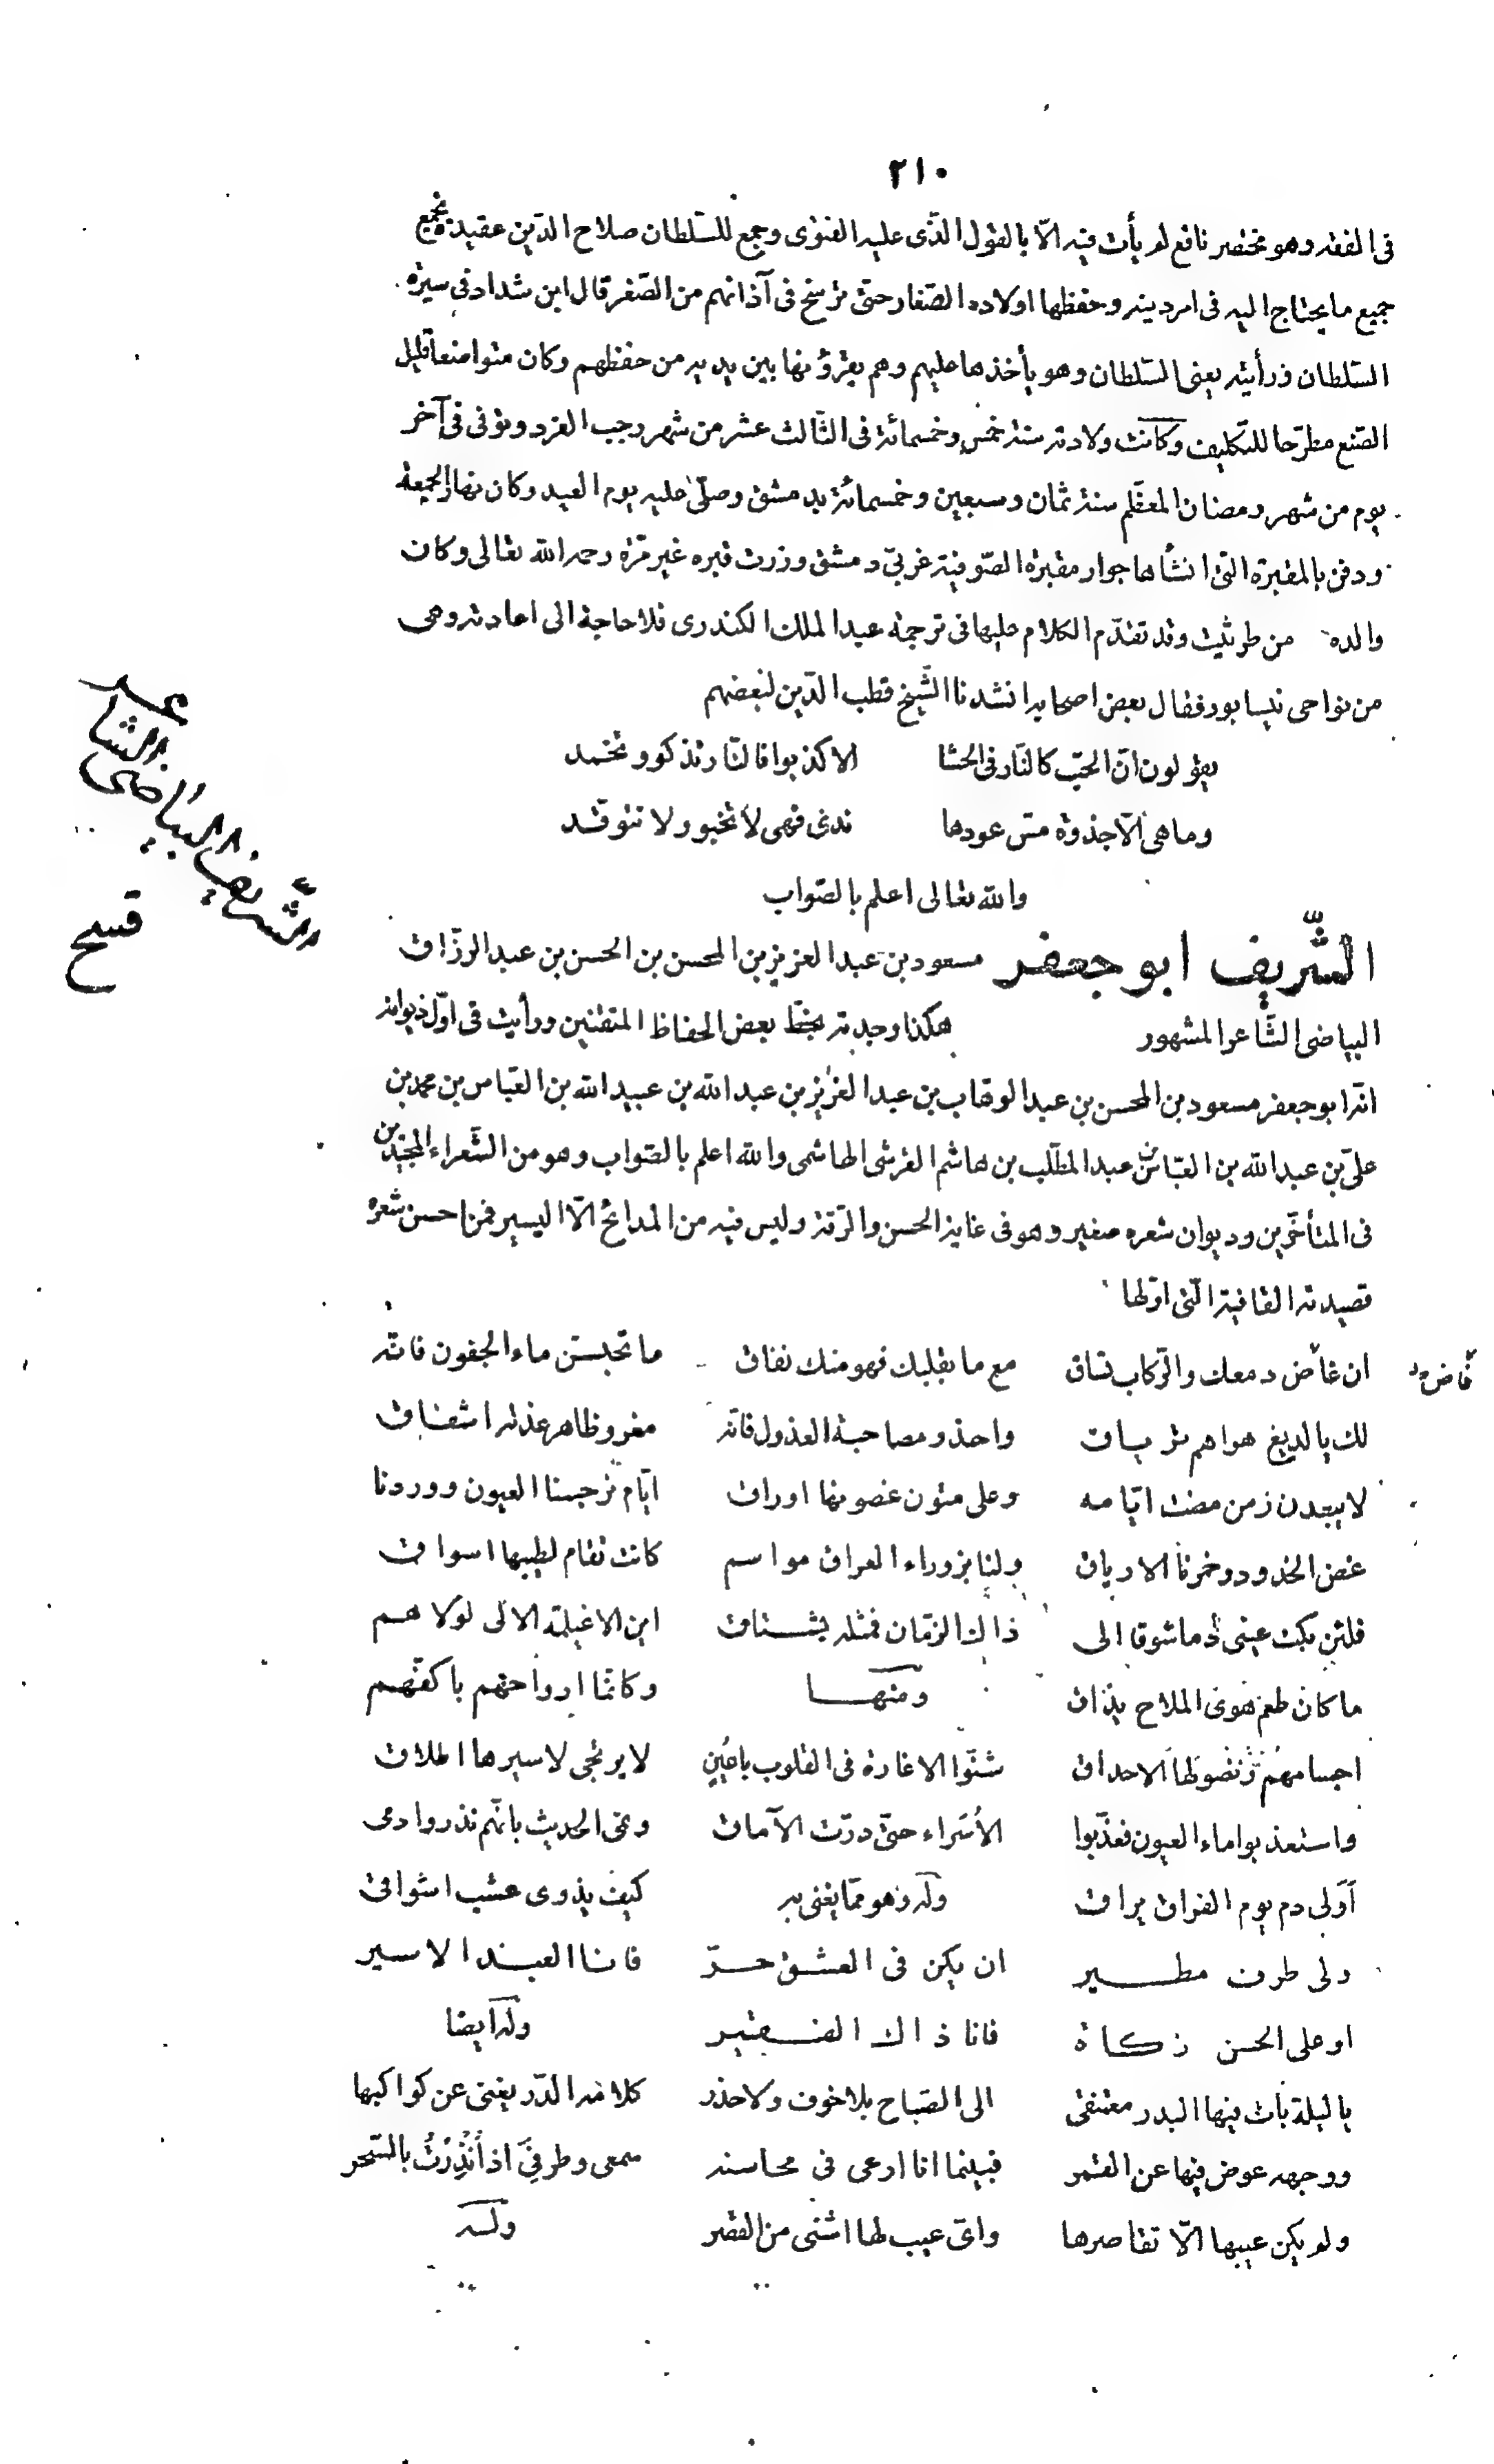 ٢١٠
فى الفقه وهو مختصر نافع لم يأت فيه الّا بالقول الّذى عليه الفتوى وجمع للسّلطان صلاح الدّين عقيدة تجمع
جميع ما يحتاج اليه فى امر دينه وحفظها اولاده الصّغار حتّى ترسخ فى آذانهم من الصّغر قال ابن شداد فى سيرة
السّلطان ورأيته يعنى السّلطان وهو يأخذها عليهم وهم يقرؤنها بين يديه من حفظهم وكان متواضعا قليل
التصّنع مطرّحا للتّكليف وكانت ولادته سنة خمس وخمسمائة فى الثّالث عشر من شهر رجب الفرد وتوفى فى آخر
يوم من شهر رمضان المعظّم سنة ثمان وسبعين وخمسمائة بدمشق وصلّى عليه يوم العيد وكان نهار الجمعة
ودفن بالمقبرة الّتى انشأها جوار مقبرة الصّوفية غربىّ دمشق وزرت قبره غير مرّة رحمه الله تعالى وكان
والده من طرثيث وقد تقدّم الكلام عليها فى ترجمة عبد الملك الكندرى فلا حاجة الى اعادته وهى
من نواحى نيسابور فقال بعض اصحابه انشدنا الشّيخ قطب الدّين لبعضهم
يقولون انّ الحبّ كالنّار فى الحشا الا كذبوا فالنّار تذكو وتخمد
وما هى الّا جذوة مسّ عودها ندى فهى لا تخبو ولا تتوقّد
والله تعالى اعلم بالصّواب
الشّريف ابو جعفر مسعود بن عبد العزيز بن المحسن بن الحسن بن عبد الرزّاق
البياضى الشّاعر المشهور هكذا وجدته بخطّ بعض الحفاظ المتقنين ورأيت فى اوّل ديوانه
انّه ابو جعفر مسعود بن المحسن بن عبد الوهّاب بن عبد العزيز بن عبد الله بن عبيد الله بن العبّاس بن محمد بن
علىّ بن عبد الله بن العبّاس بن عبد المطّلب بن هاشم القرشى الهاشمى والله اعلم بالصّواب وهو من الشّعراء المجيدين
فى المتأخّرين وديوان شعره صغير وهو فى غاية الحسن والرّقة وليس فيه من المدائح الّا اليسير فمن احسن شعره
قصيدته القافية الّتى اوّلها
ان غاض دمعك والرّكاب تساق مع ما بقلبك فهو منك نفاق ما تحبسن ماء الجفون فانّه
فاض
لك يا لديغ هواهم ترياق واحذر مصاحبة العذول فانّه مغر وظاهر عذله اشفاق
لا يبعدن زمن مضت ايّامه وعلى متون غصونها اوراق ايّام نرجسنا العيون ووردنا
غض الخدود وخمرنا الارياق ولنا بزوراء العراق مواسم كانت تقام لطيبها اسواق
فلئن بكت عينى دما شوقا الى ذاك الزمّان فمثله يشتاق اين الاغيلمة الالى لولا هم
ما كان طعم هوى الملاح يذاق ومنها وكانّما ارواحهم باكفّهم
اجسامهم ونضولها الاحداق شنّوا الاغارة فى القلوب باعين لا يرتجى لاسيرها اطلاق
واستعذبوا ماء العيون فعذّبوا الأسراء حتّى درّت الآماق ونمى الحديث بانّهم نذروا دمى
أولى دم يوم الفراق يراق وله وهو ممّا يغنى به كيف يذوى عشب اشواقى
ولى طرف مطير ان يكن فى العشق حرّ فانا العبد الاسير
او على الحسن زكاة فانا ذاك الفقير وله ايضا
يا ليلة بات فيها البدر معتنقى الى الصّباح بلا خوف ولا حذر كلامه الدّر يغنى عن كواكبها
ووجهه عوض فيها عن القمر فبينما انا ارعى فى محاسنه سمعى وطرفى اذ أنذرت بالسّحر
ولم يكن عيبها الّا تقاصرها واىّ عيب لها اشنى من القصر وله
الشّريف البياضى الشاعر